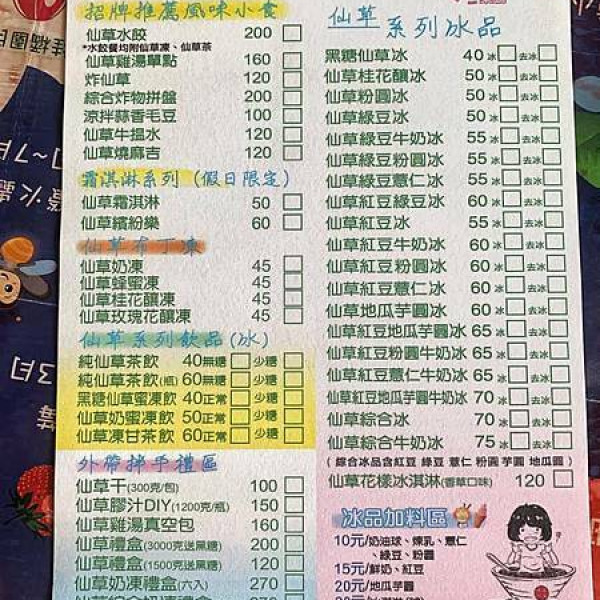 招牌推薦風味小食
仙草水餃 200
*水餃餐均附仙草凍、仙草茶
仙草雞湯單點 160
炸仙草 120
綜合炸物拼盤 200
涼拌蒜香毛豆 100
仙草牛搵水 120
仙草燒麻吉 120
霜淇淋系列(假日限定)
仙草霜淇淋 50
仙草繽紛樂 60
仙草布丁凍
仙草奶凍 45
仙草蜂蜜凍 45
仙草桂花釀凍 45
仙草玫瑰花釀凍 45
仙草系列飲品(冰)
純仙草茶飲 40 無糖 少糖
純仙草茶飲(瓶) 60 無糖 少糖
黑糖仙草蜜凍飲 40 正常 少糖
仙草奶蜜凍飲 50 正常 少糖
仙草凍甘茶飲 60 正常 少糖
外帶伴手禮區
仙草干(300克/包) 100
仙草膠汁DIY(1200克/瓶) 150
仙草雞湯真空包 160
仙草禮盒(3000克送黑糖) 200
仙草禮盒(1500克送黑糖) 120
仙草奶凍禮盒(六入) 270
仙草綜合奶凍禮盒 270
仙草系列冰品
黑糖仙草冰 40 冰 去冰
仙草桂花釀冰 50 冰 去冰
仙草粉圓冰 50 冰 去冰
仙草綠豆冰 50 冰 去冰
仙草綠豆牛奶冰 55 冰 去冰
仙草綠豆粉圓冰 55 冰 去冰
仙草綠豆薏仁冰 55 冰 去冰
仙草紅豆綠豆冰 60 冰 去冰
仙草紅豆冰 55 冰 去冰
仙草紅豆牛奶冰 60 冰 去冰
仙草紅豆粉圓冰 60 冰 去冰
仙草紅豆薏仁冰 60 冰 去冰
仙草地瓜芋圓冰 60 冰 去冰
仙草紅豆地瓜芋圓冰 65 冰 去冰
仙草紅豆粉圓牛奶冰 65 冰 去冰
仙草紅豆薏仁牛奶冰 65 冰 去冰
仙草紅豆地瓜芋圓牛奶冰 70 冰 去冰
仙草綜合冰 70 冰 去冰
仙草綜合牛奶冰 75 冰 去冰
(綜合冰品含紅豆 綠豆 薏仁 粉圓 芋圓 地瓜圓)
仙草花樣冰淇淋(香草口味) 120
冰品加料區
10元/奶油球、煉乳、薏仁
、綠豆、粉圓
15元/鮮奶、紅豆
20元/地瓜芋圓